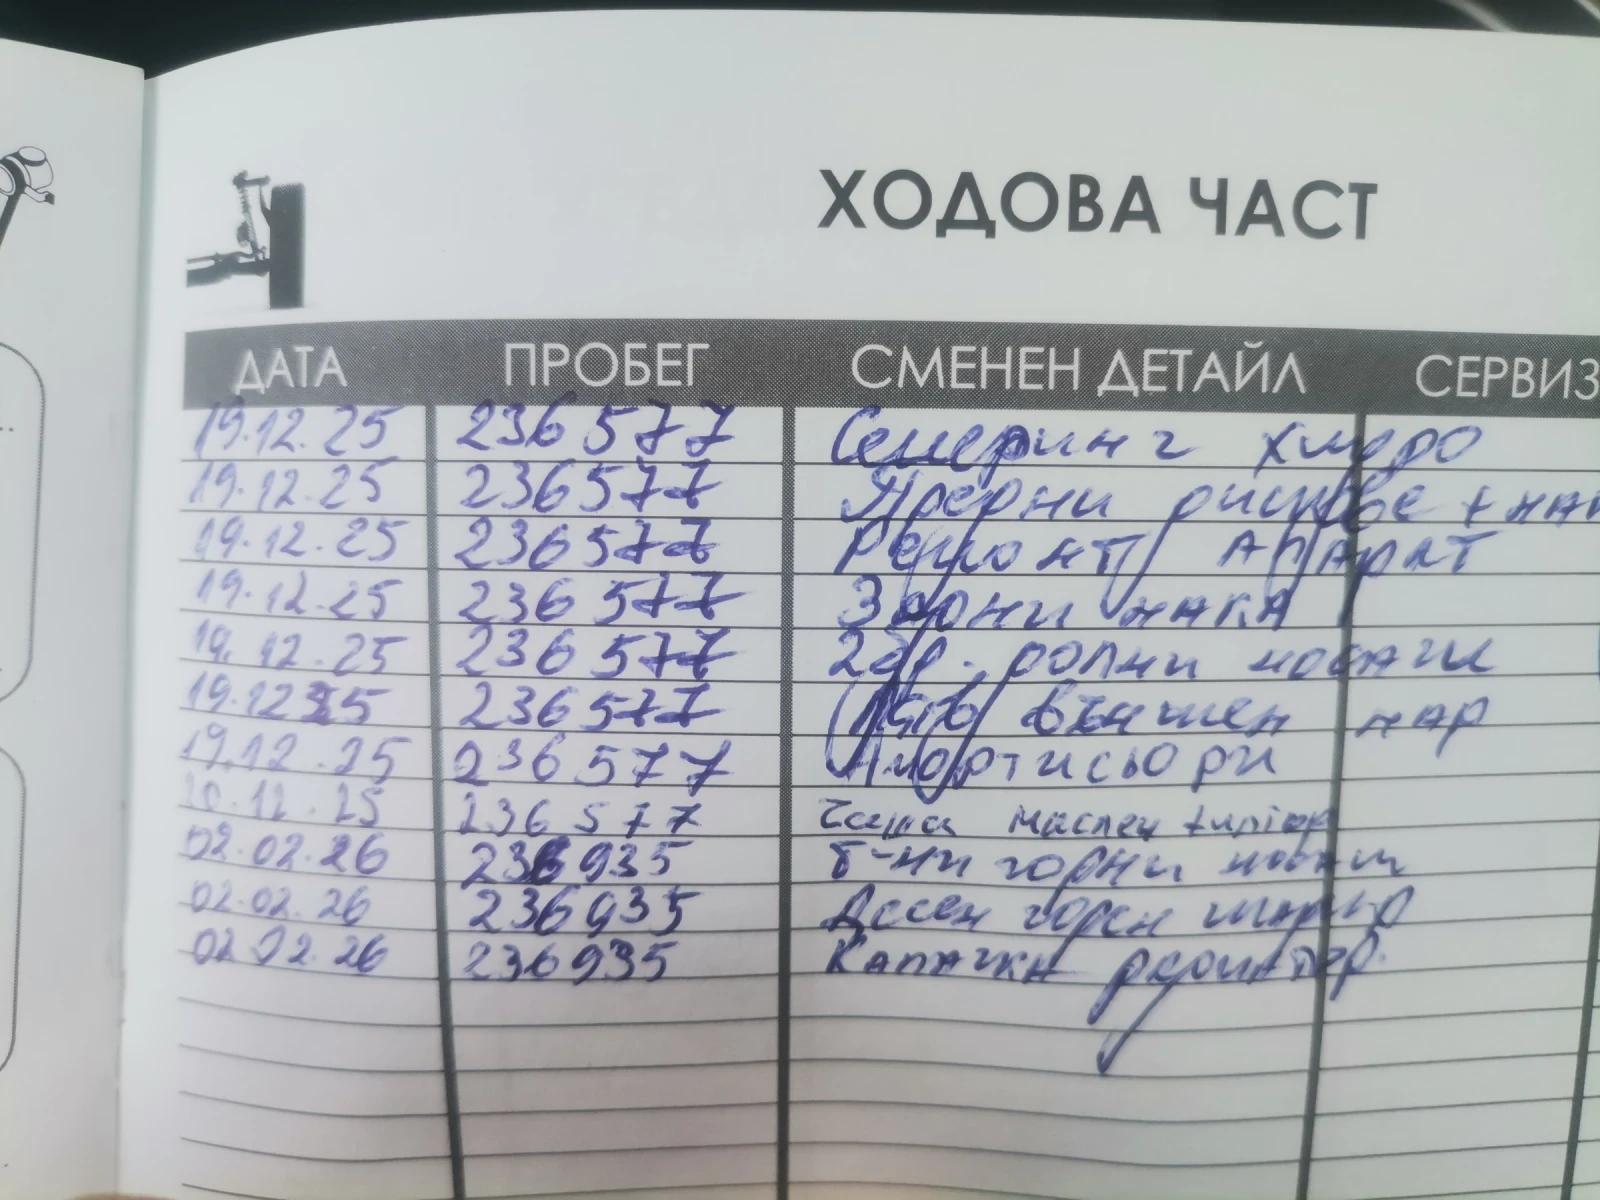 ХОДОВА ЧАСТ
ДАТА ПРОБЕГ СМЕНЕН ДЕТАЙЛ СЕРВИЗ
19.12.25 236577 Семеринг хидро
19.12.25 236577 Предни дискове + нак
19.12.25 236577 Ремонт апарат
19.12.25 236577 Задни нака
19.12.25 236577 2бр. долни носачи
19.12.25 236577 Ляв външен кар
19.12.25 236577 Амортисьори
20.12.25 236577 Чаша маслен филтър
02.02.26 236935 Т-ни горни носачи
02.02.26 236935 Десен горен шарнир
02.02.26 236935 Капачка